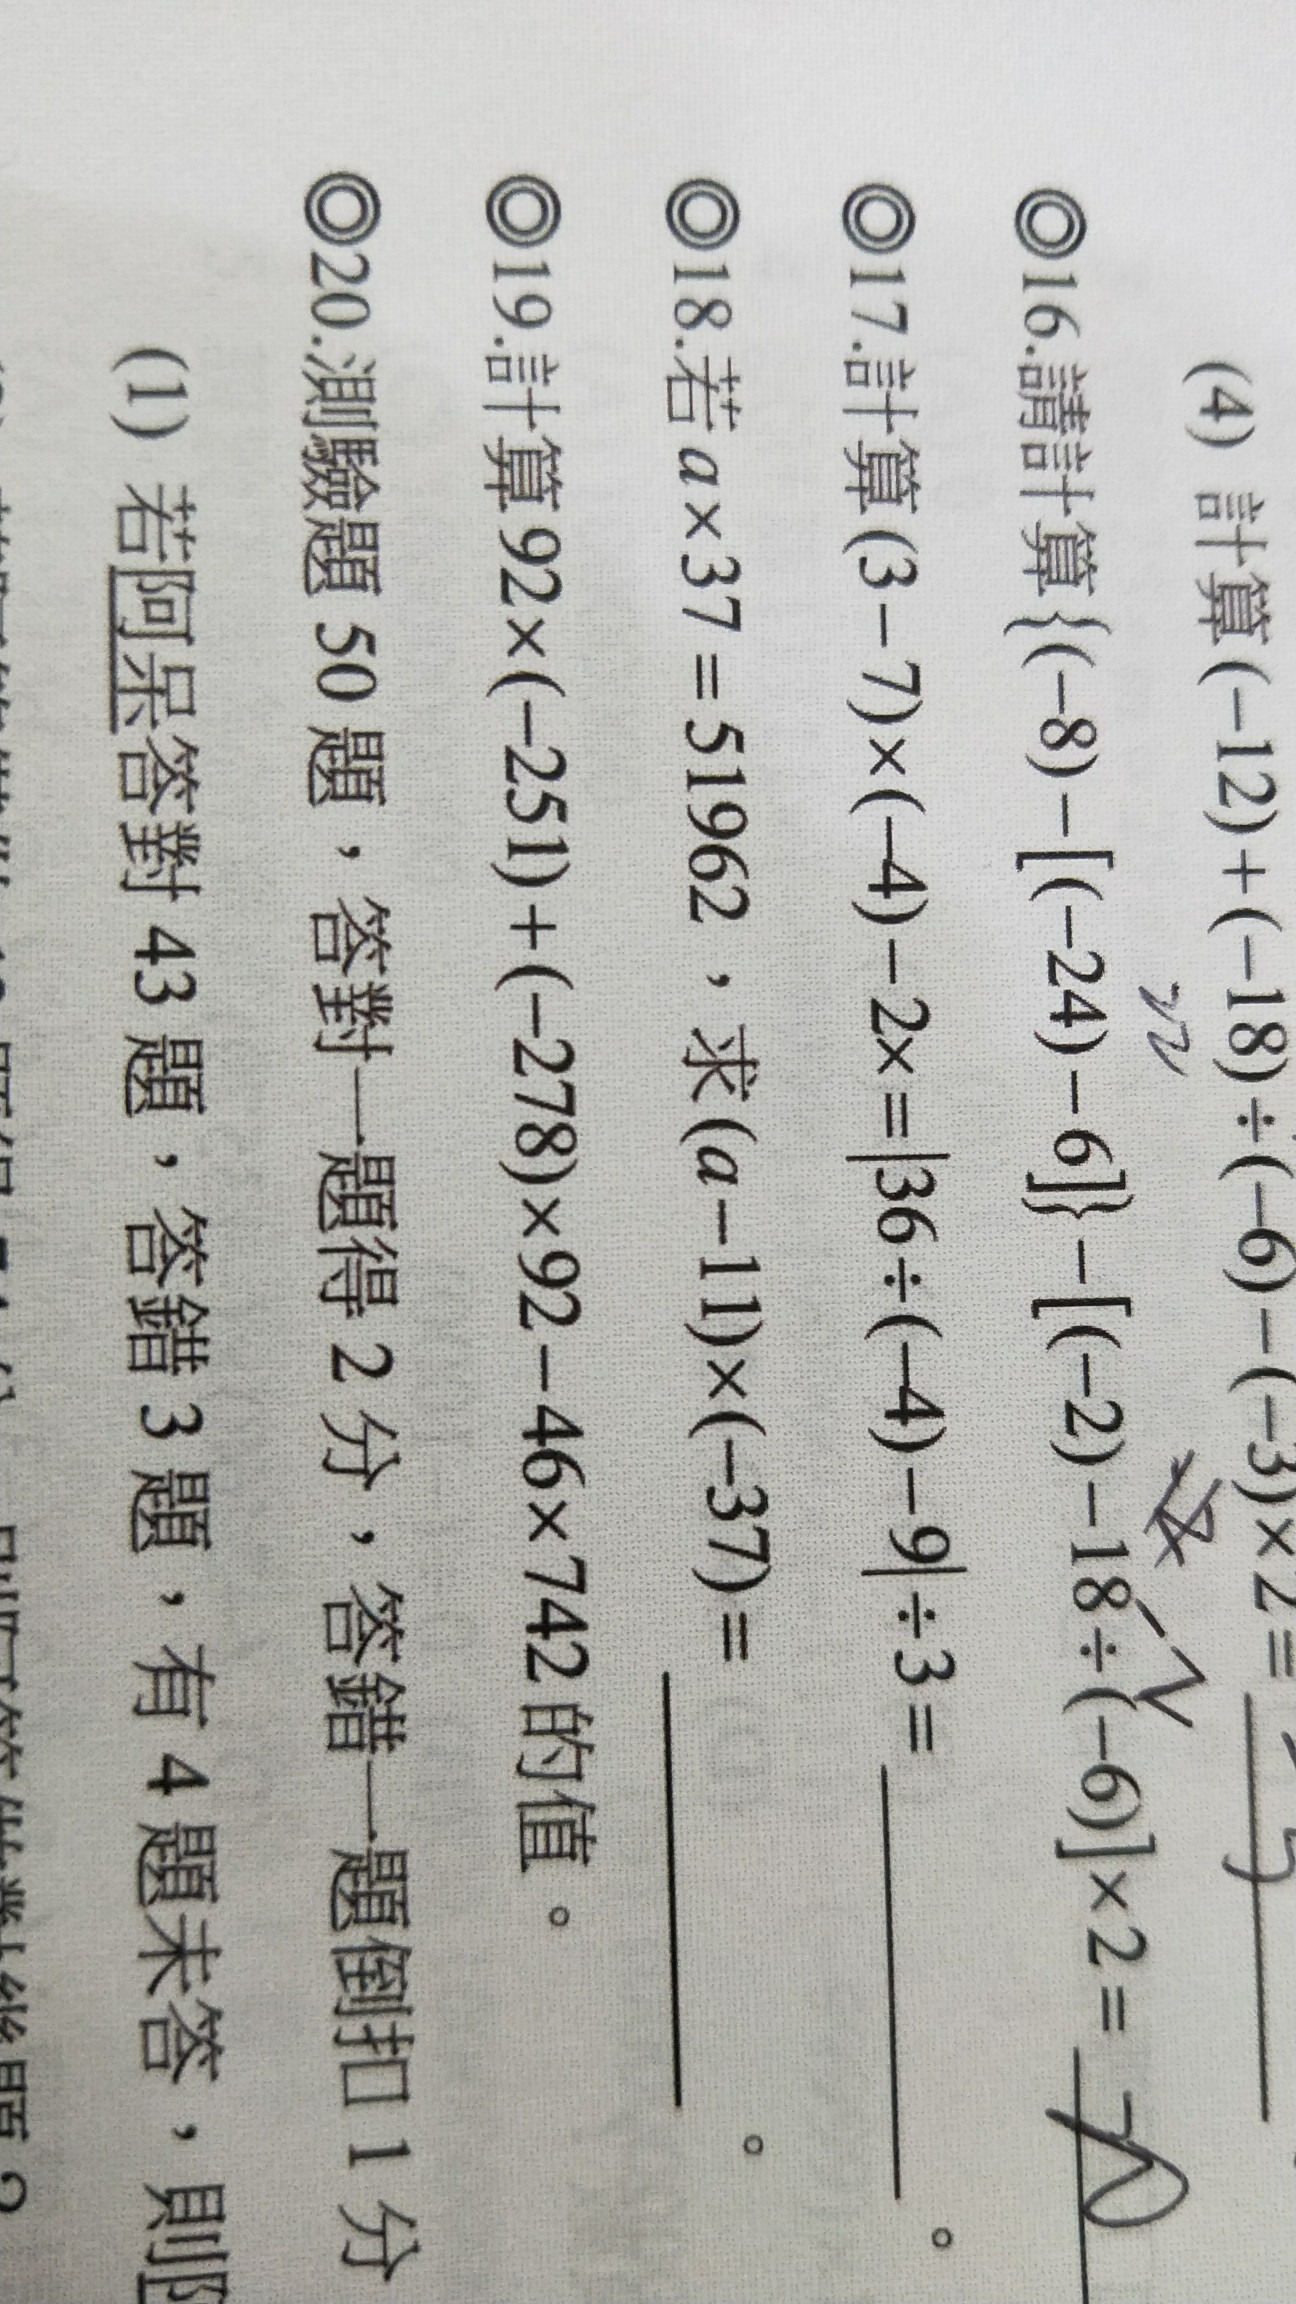 (4) 計算(−12)+(−18)÷(−6)−(−3)×2=
◎16.請計算{(−8)−[(−24)−6]}−[(−2)−18÷(−6)]×2= 20
22
◎17.計算(3−7)×(−4)−2×=|36÷(−4)−9|÷3= 。
◎18.若a×37=51962,求(a−11)×(−37)= 。
◎19.計算92×(−251)+(−278)×92−46×742的值。
◎20.測驗題50題,答對一題得2分,答錯一題倒扣1分
(1) 若阿呆答對43題,答錯3題,有4題未答,則